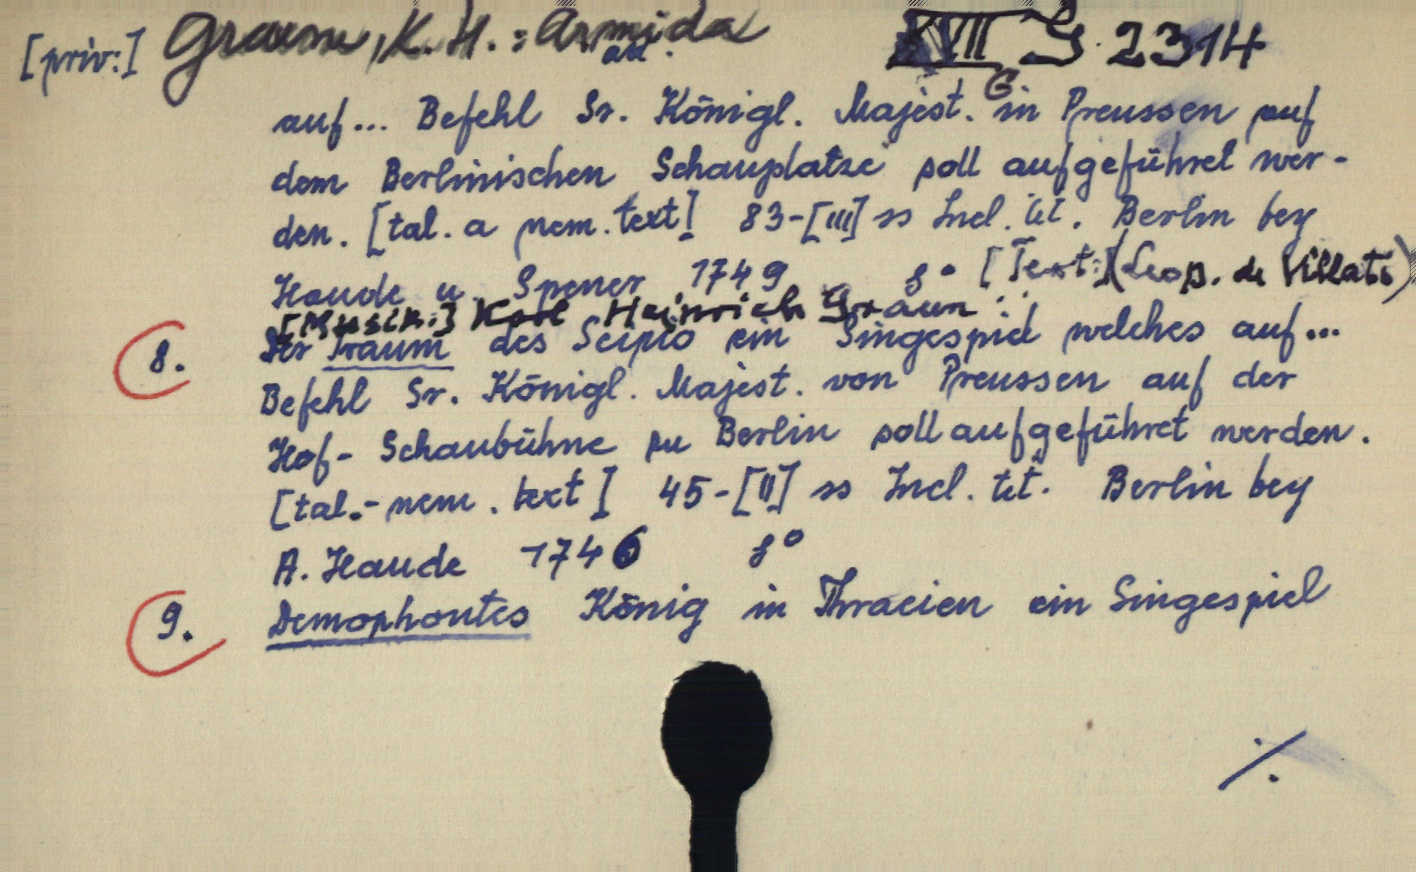 [priv:] Graun, K. H.: Armida
XVII S 2314
ad.
G
auf... Befehl Sr. Königl. Majest. in Preussen auf
dem Berlinischen Schauplatze soll aufgeführet wer-
den. [tal. a nem. text] 83-[III] ss Incl. tit. Berlin bey
Haude u Spener 1749 8° [Text:](Leop. de Villati)
[Musik:] Karl Heinrich Graun
8. Der Traum des Scipio ein Singespiel welches auf...
Befehl Sr. Königl. Majest. von Preussen auf der
Hof- Schaubühne zu Berlin soll aufgeführet werden.
[tal.- nem. text] 45-[II] ss Incl. tit. Berlin bey
A. Haude 1746 8°
9. Demophontes König in Thracien ein Singespiel
./.